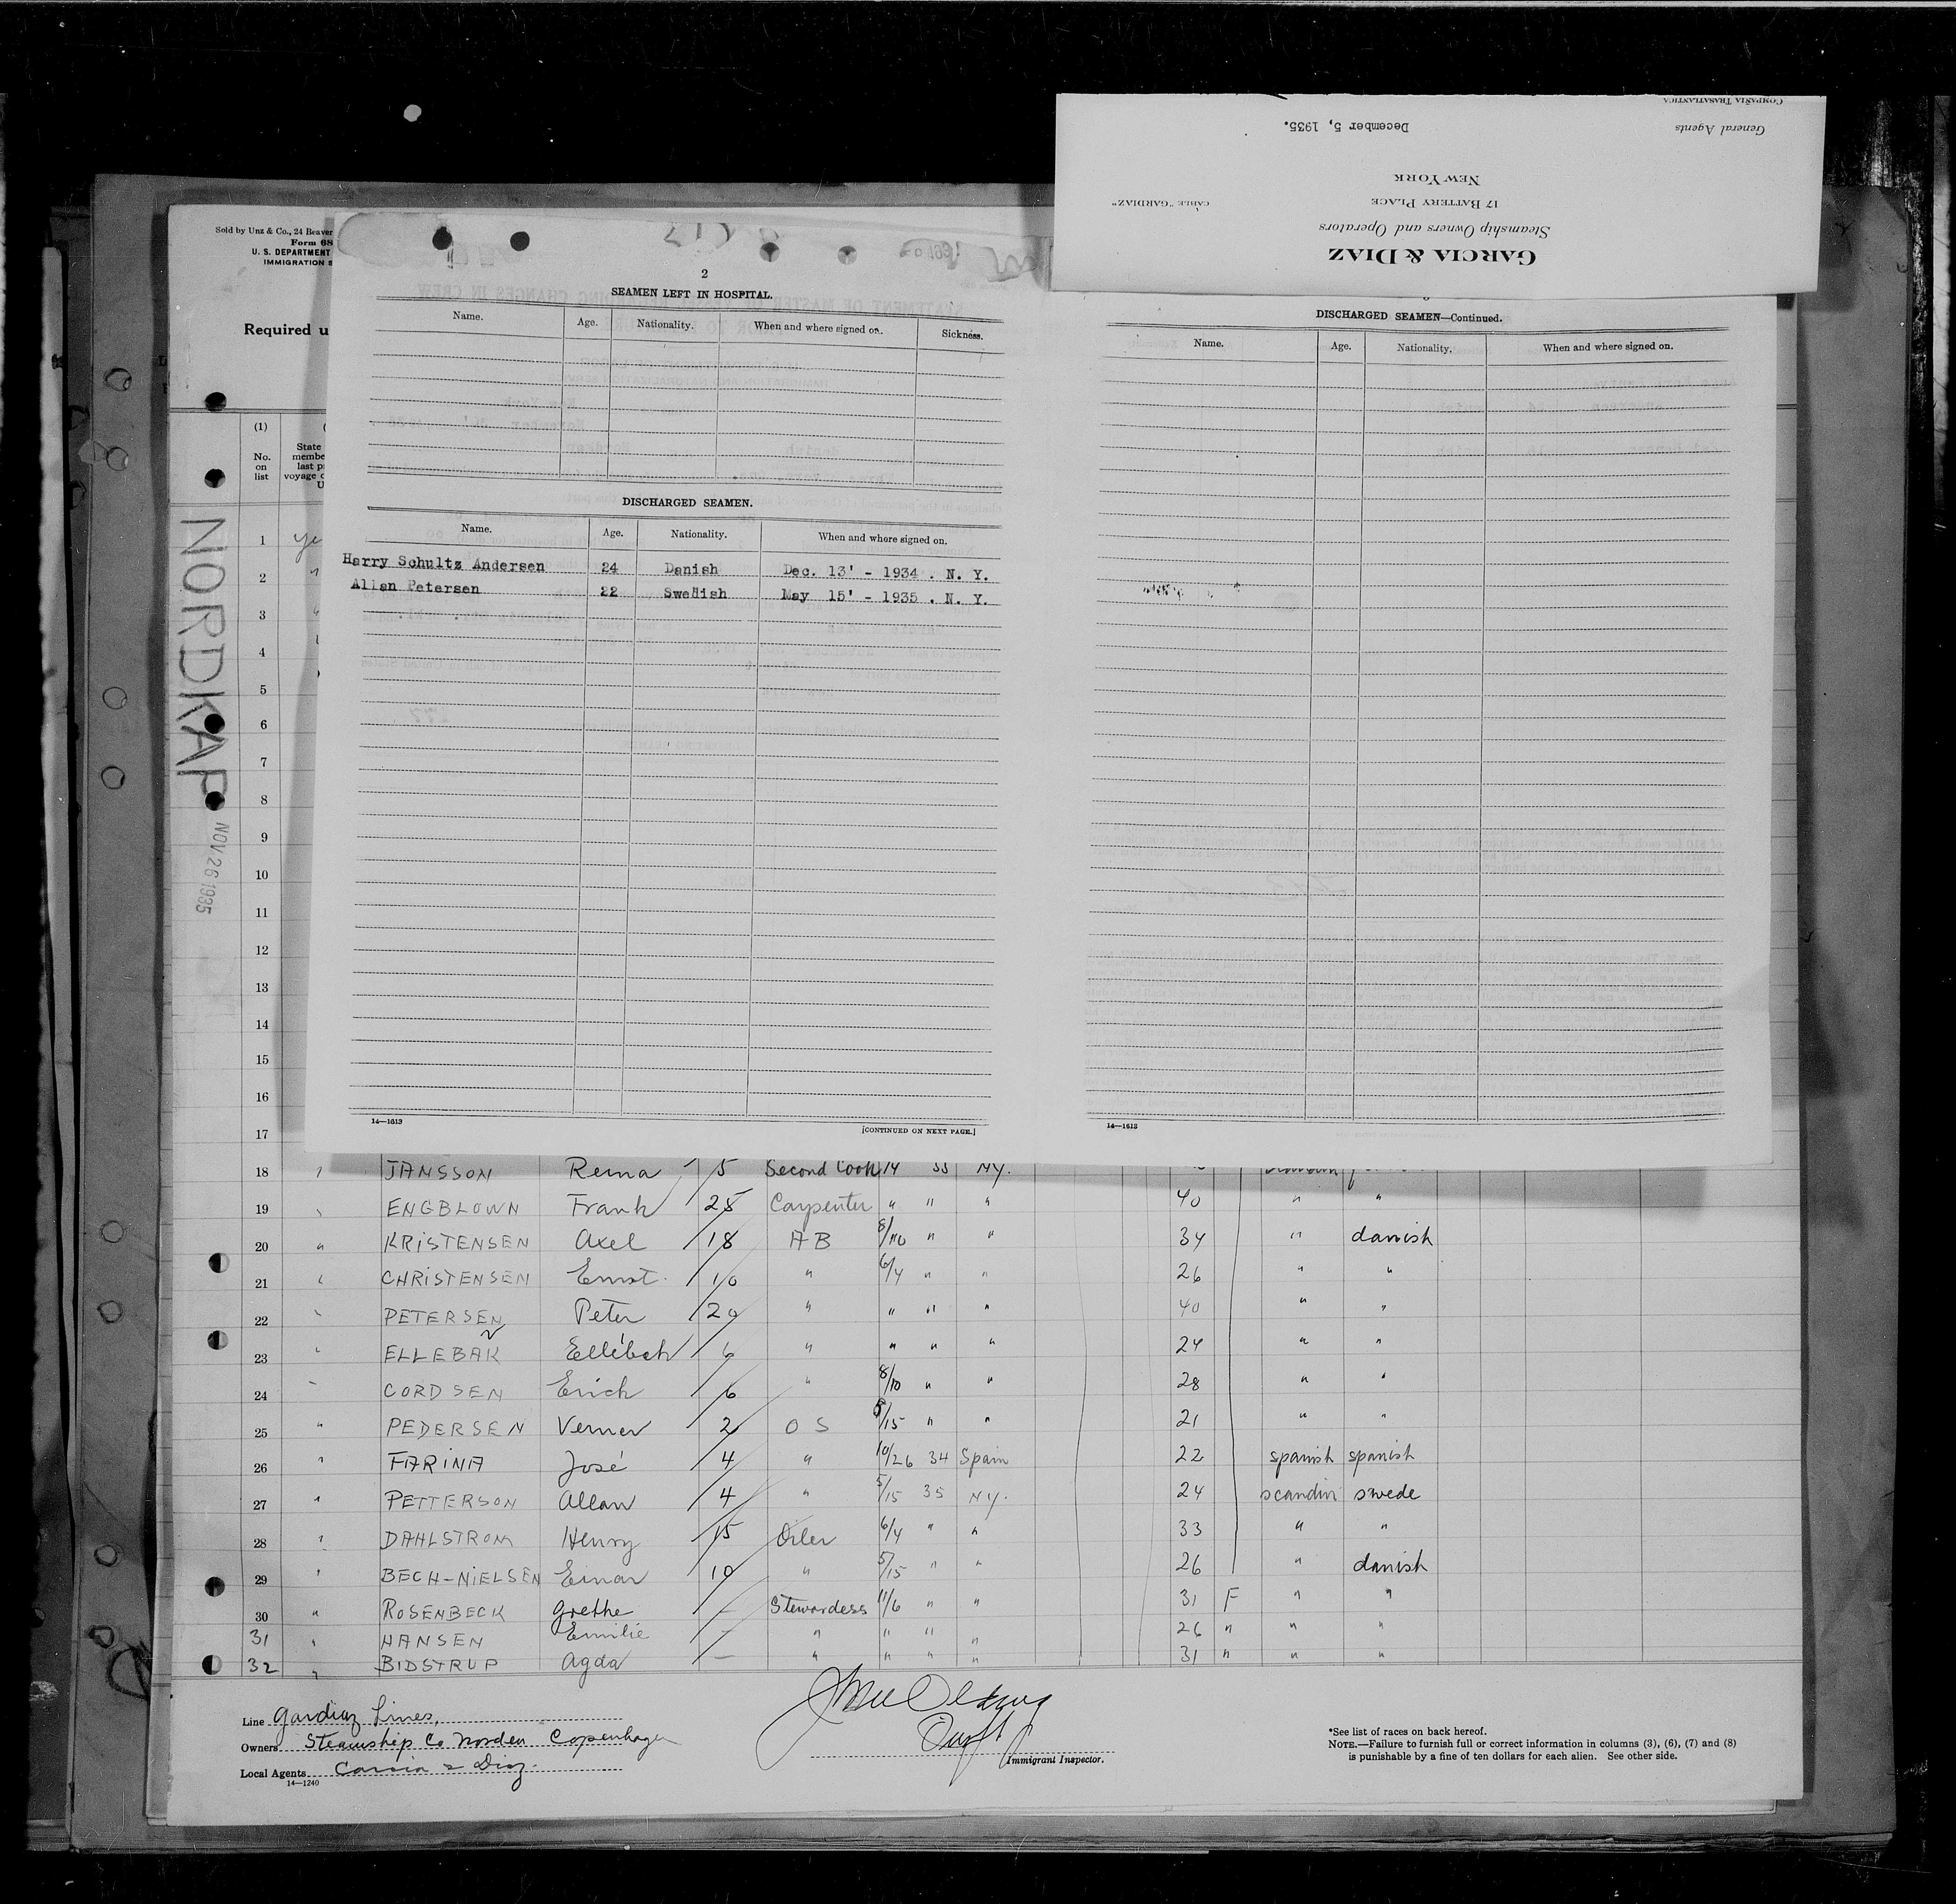 COMPAÑIA TRASATLANTICA
General Agents
December 5, 1935.
NEW YORK
17 BATTERY PLACE
CABLE "GARDIAZ"
Steamship Owners and Operators
GARCIA & DIAZ
Sold by Unz & Co., 24 Beaver
Form 68
U. S. DEPARTMENT
IMMIGRATION S
Required u
(1)
No. on list
State
membe
last p
voyage
U
NORDKAP
NOV 26 1935
2
SEAMEN LEFT IN HOSPITAL.
Name. Age. Nationality. When and where signed on. Sickness.
DISCHARGED SEAMEN.
Name. Age. Nationality. When and where signed on.
Harry Schultz Andersen 24 Danish Dec. 13' - 1934 . N. Y.
Allan Petersen 22 Swedish May 15' - 1935 . N. Y.
14—1613
[CONTINUED ON NEXT PAGE.]
DISCHARGED SEAMEN—Continued.
Name. Age. Nationality. When and where signed on.
14—1613
1 ye
2 "
3 "
4
5
6
7
8
9
10
11
12
13
14
15
16
17
18 " JANSSON 5 Second Cook 14 35 NY.
19 " ENGBLOWN Frank 25 Carpenter " " " 40 " "
20 " KRISTENSEN Axel 18 AB 8/10 " " 34 " danish
21 " CHRISTENSEN Ernst 10 " 6/4 " " 26 " "
22 " PETERSEN Peter 20 " " " " 40 " "
23 " ELLEBAK Ellebak 6 " " " " 24 " "
24 " CORDSEN Erich 6 " 8/10 " " 28 " "
25 " PEDERSEN Verner 2 OS /15 " " 21 " "
26 " FARINA José 4 " 10/26 34 Spain 22 spanish spanish
27 " PETTERSON Allan 4 " 5/15 35 NY. 24 scandin swede
28 " DAHLSTROM Henry 15 Oiler 6/4 " " 33 " "
29 " BECH-NIELSEN Einar 10 " 5/15 " " 26 " danish
30 " ROSENBECK Grethe — Stewardess 11/6 " " 31 F " "
31 " HANSEN Emilie — " " " " 26 " " "
32 " BIDSTRUP Agda — " " " " 31 " " "
Line Gardiaz Lines,
Owners Steamship Co Norden Copenhagen
Local Agents Garcia & Diaz.
14—1240
Immigrant Inspector.
*See list of races on back hereof.
NOTE.—Failure to furnish full or correct information in columns (3), (6), (7) and (8)
is punishable by a fine of ten dollars for each alien. See other side.